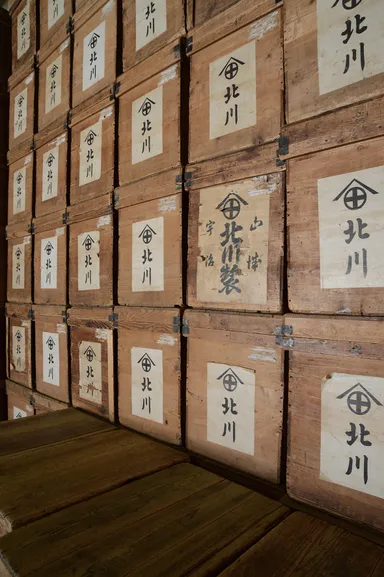 北川
北川
北川
北川
北川
北川
北川
北川
北川
北川
北川
北川
北川
北川
山城
北川製
宇治
北川
北川
北川
北川
北川
北川
北川
北川